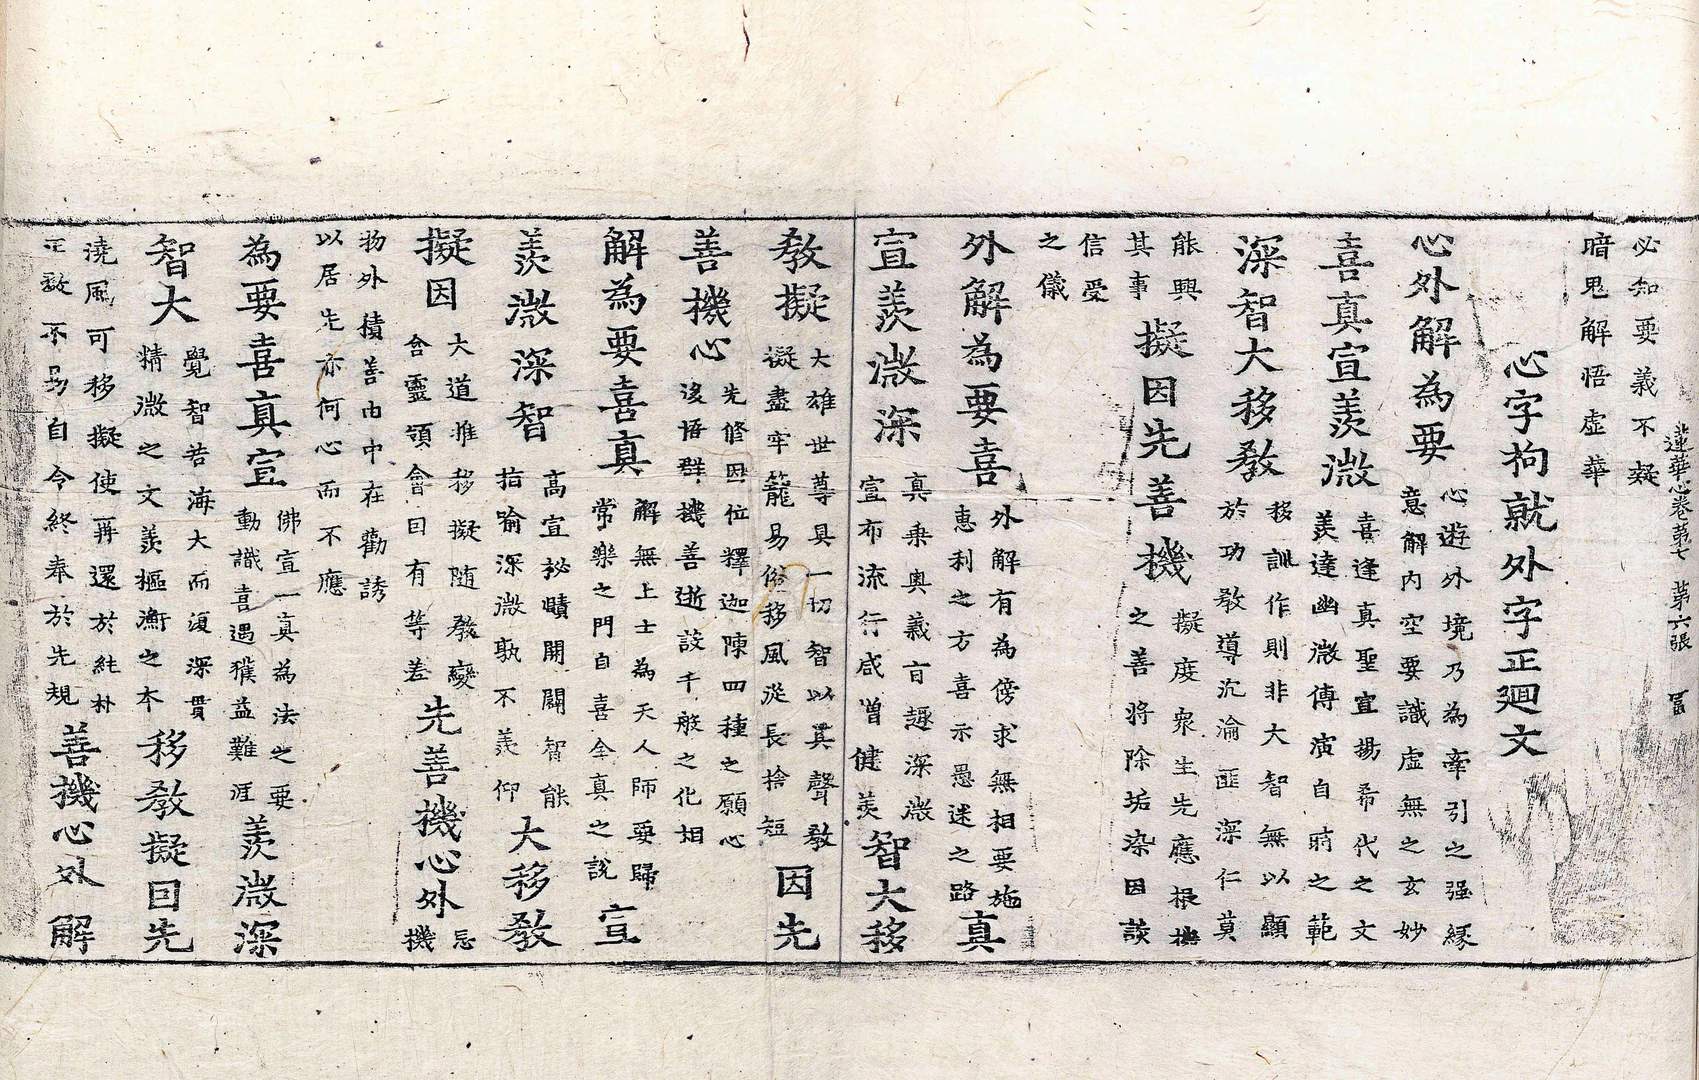 蓮華心卷第七 第六張
必知要義不凝
暗思解悟虛華
心字拘就外字正廻文
心外解為要
心遊外境乃為牽引之强緣
意解內空要識虛無之玄妙
喜真宣羨微
喜逢真聖宣揚希代之文
羨達幽微傅演自時之範
深智大移教
移訓作則非大智無以顯
於功教導沉淪匪深仁莫
能興
其事
擬因先善機
擬度衆生先應根機
之善將除垢染因談
信受
之儀
外解為要喜
外解有為傍求無相要施
惠利之方喜示愚迷之路
真
宣羨微深
真乗奥義言趣深微
宣布流行咸增健羨
智大移
教擬
大雄世尊具一切智以其聲教
擬盡牢籠易俗移風從長捨短
因先
善機心
先修因位釋迦陳四種之願心
後悟群機善逝設千般之化相
解為要喜真
解無上士為天人師要歸
常樂之門自喜全真之說
宣
羨微深智
高宣祕賾開闡智能
指喻深微孰不羨仰
大移教
擬因
大道推移擬随教變
含靈領會因有等差
先善機心外
忘
機
物外積善由中在勸誘
以居先亦何心而不應
為要喜真宣
佛宣一真為法之要
動識喜遇獲益難涯
羨微深
智大
覺智若海大而復深貫
精微之文羨樞衡之本
移教擬因先
澆風可移擬使再還於純朴
正教不易自今終奉於先規
善機心外解